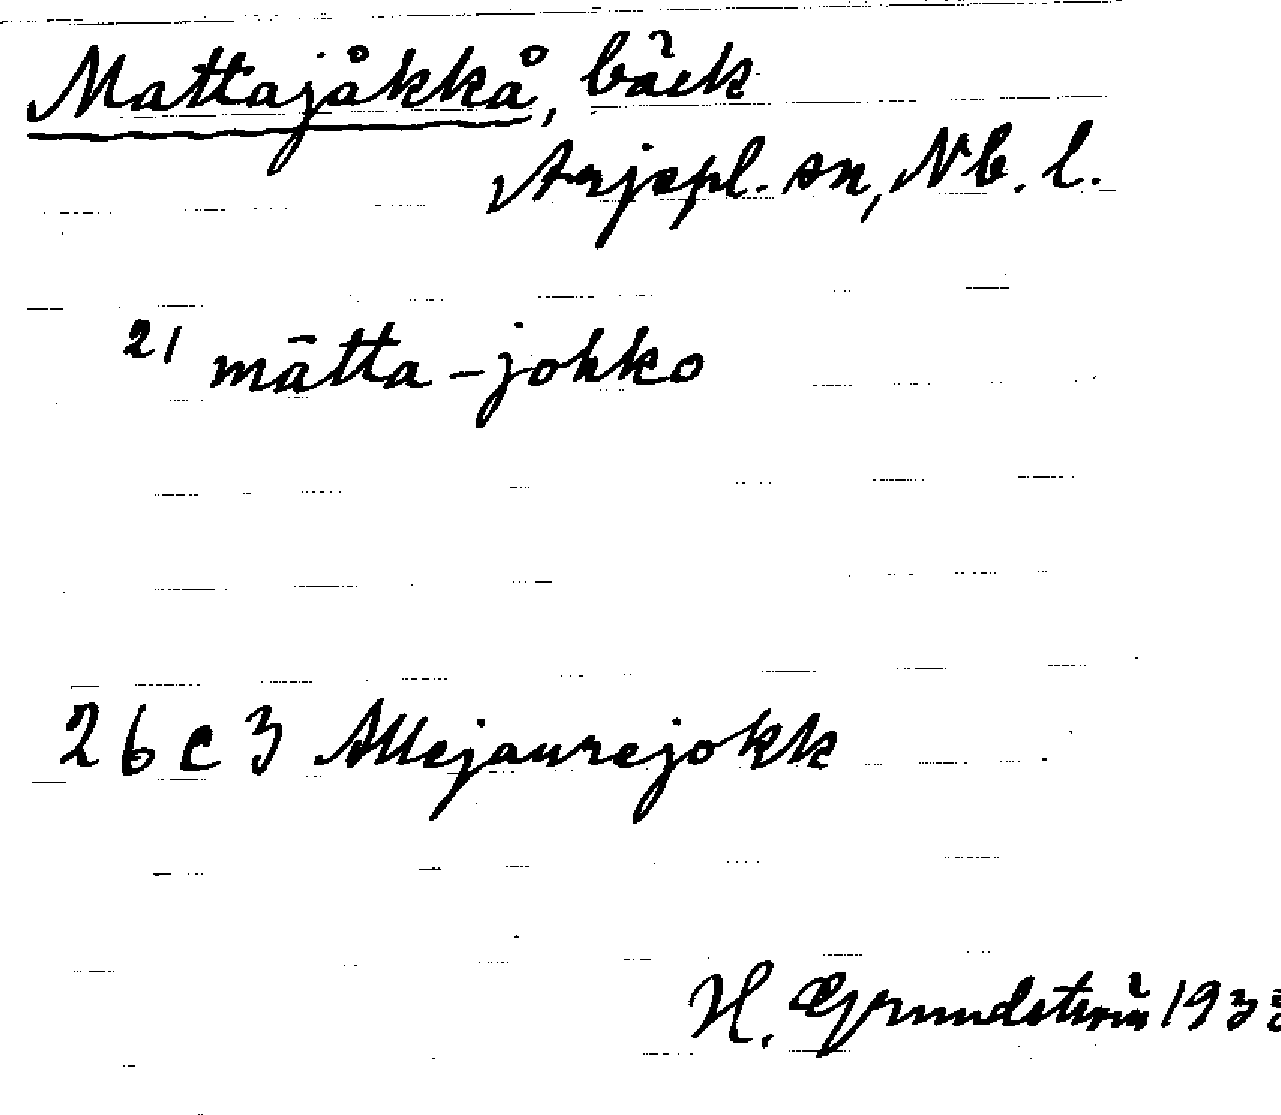 Mattajåkkå, bäck
Arjepl. sn, Nb. l.
21 mātta-johko
26 c 3 Allejaurejokk
H. Grundström 193